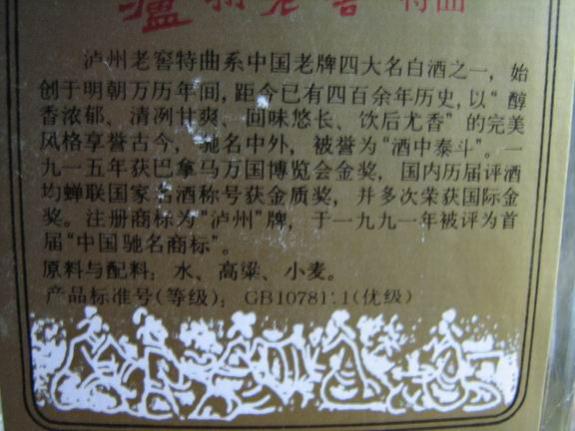 瀘州老窖 特曲
泸州老窖特曲系中国老牌四大名白酒之一，始
创于明朝万历年间，距今已有四百余年历史，以“醇
香浓郁、清冽甘爽、回味悠长、饮后尤香”的完美
风格享誉古今，驰名中外，被誉为“酒中泰斗”。一
九一五年获巴拿马万国博览会金奖，国内历届评酒
均蝉联国家名酒称号获金质奖，并多次荣获国际金
奖。注册商标为“泸州”牌，于一九九一年被评为首
届“中国驰名商标”。
原料与配料：水、高粱、小麦。
产品标准号(等级)：GB10781.1(优级)